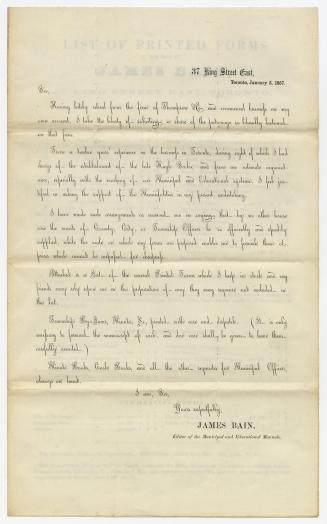 37 King Street East,
Toronto, January 5, 1857.
Sir,
Having lately retired from the firm of Thompson & Co., and commenced business on my
own account, I take the liberty of soliciting a share of the patronage so liberally bestowed
on that firm.
From a twelve years' experience in the business in Toronto, during eight of which I had
charge of the establishment of the late Hugh Scobie, and from an intimate acquaint-
ance, especially with the working of our Municipal and Educational systems, I feel jus-
tified in asking the support of the Municipalities in my present undertaking.
I have made such arrangements as warrant me in saying that by no other house
can the wants of County, City, or Township Officers be so efficiently and speedily
supplied, while the scale on which my forms are prepared enables me to furnish them at
prices which cannot be surpassed for cheapness.
Attached is a List of the several Printed Forms which I keep in stock and my
friends may rely upon me in the preparation of any they may require not included in
this list.
Township Bye-Laws, Minutes, &c., printed with care and despatch. (It is only
necessary to forward the manuscript of such, and due care shall be given to have them
carefully executed.)
Minute Books, Cash Books, and all the other requisites for Municipal Officers,
always on hand.
I am, Sir,
Yours respectfully,
JAMES BAIN,
Editor of the Municipal and Educational Manuals.